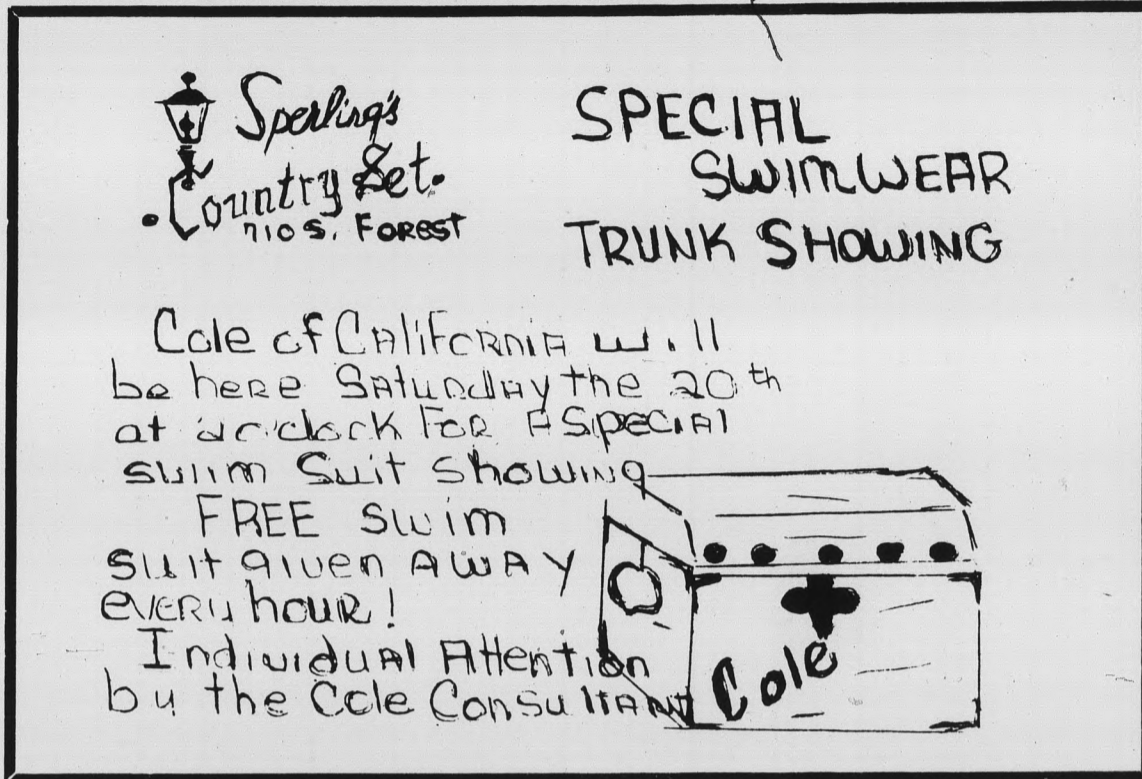 Sperling's
Country Set
710 S. FOREST
SPECIAL
SWIMWEAR
TRUNK SHOWING
Cole of CALIFORNIA will
be here SAturdAy the 20th
at o'clock FOR A SpeciAl
swim Suit showing
FREE swim
suit given AWAY
eveRy houR!
IndividuAl Attention
by the Cole ConsultANT
Cole